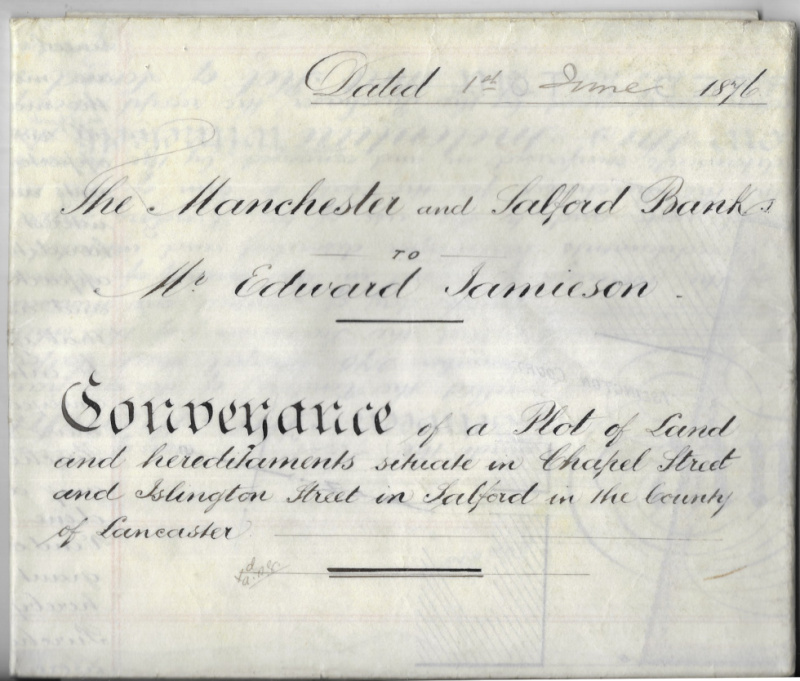 Dated 1st June 1876
The Manchester and Salford Bank
TO
Mr Edward Jamieson
Conveyance of a Plot of Land
and hereditaments situate in Chapel Street
and Islington Street in Salford in the County
of Lancaster